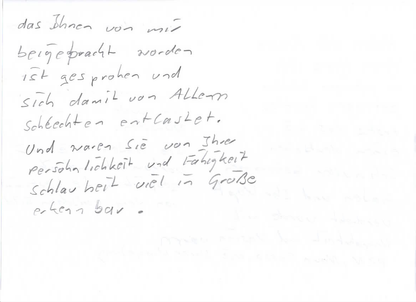 das Ihnen von mir
beigebracht worden
ist gesprohen und
sich damit von Allem
Schlechten entlastet.
Und waren Sie von Ihrer
persöhnlichkeit und Fähigkeit
Schlauheit viel in Größe
erkennbar.